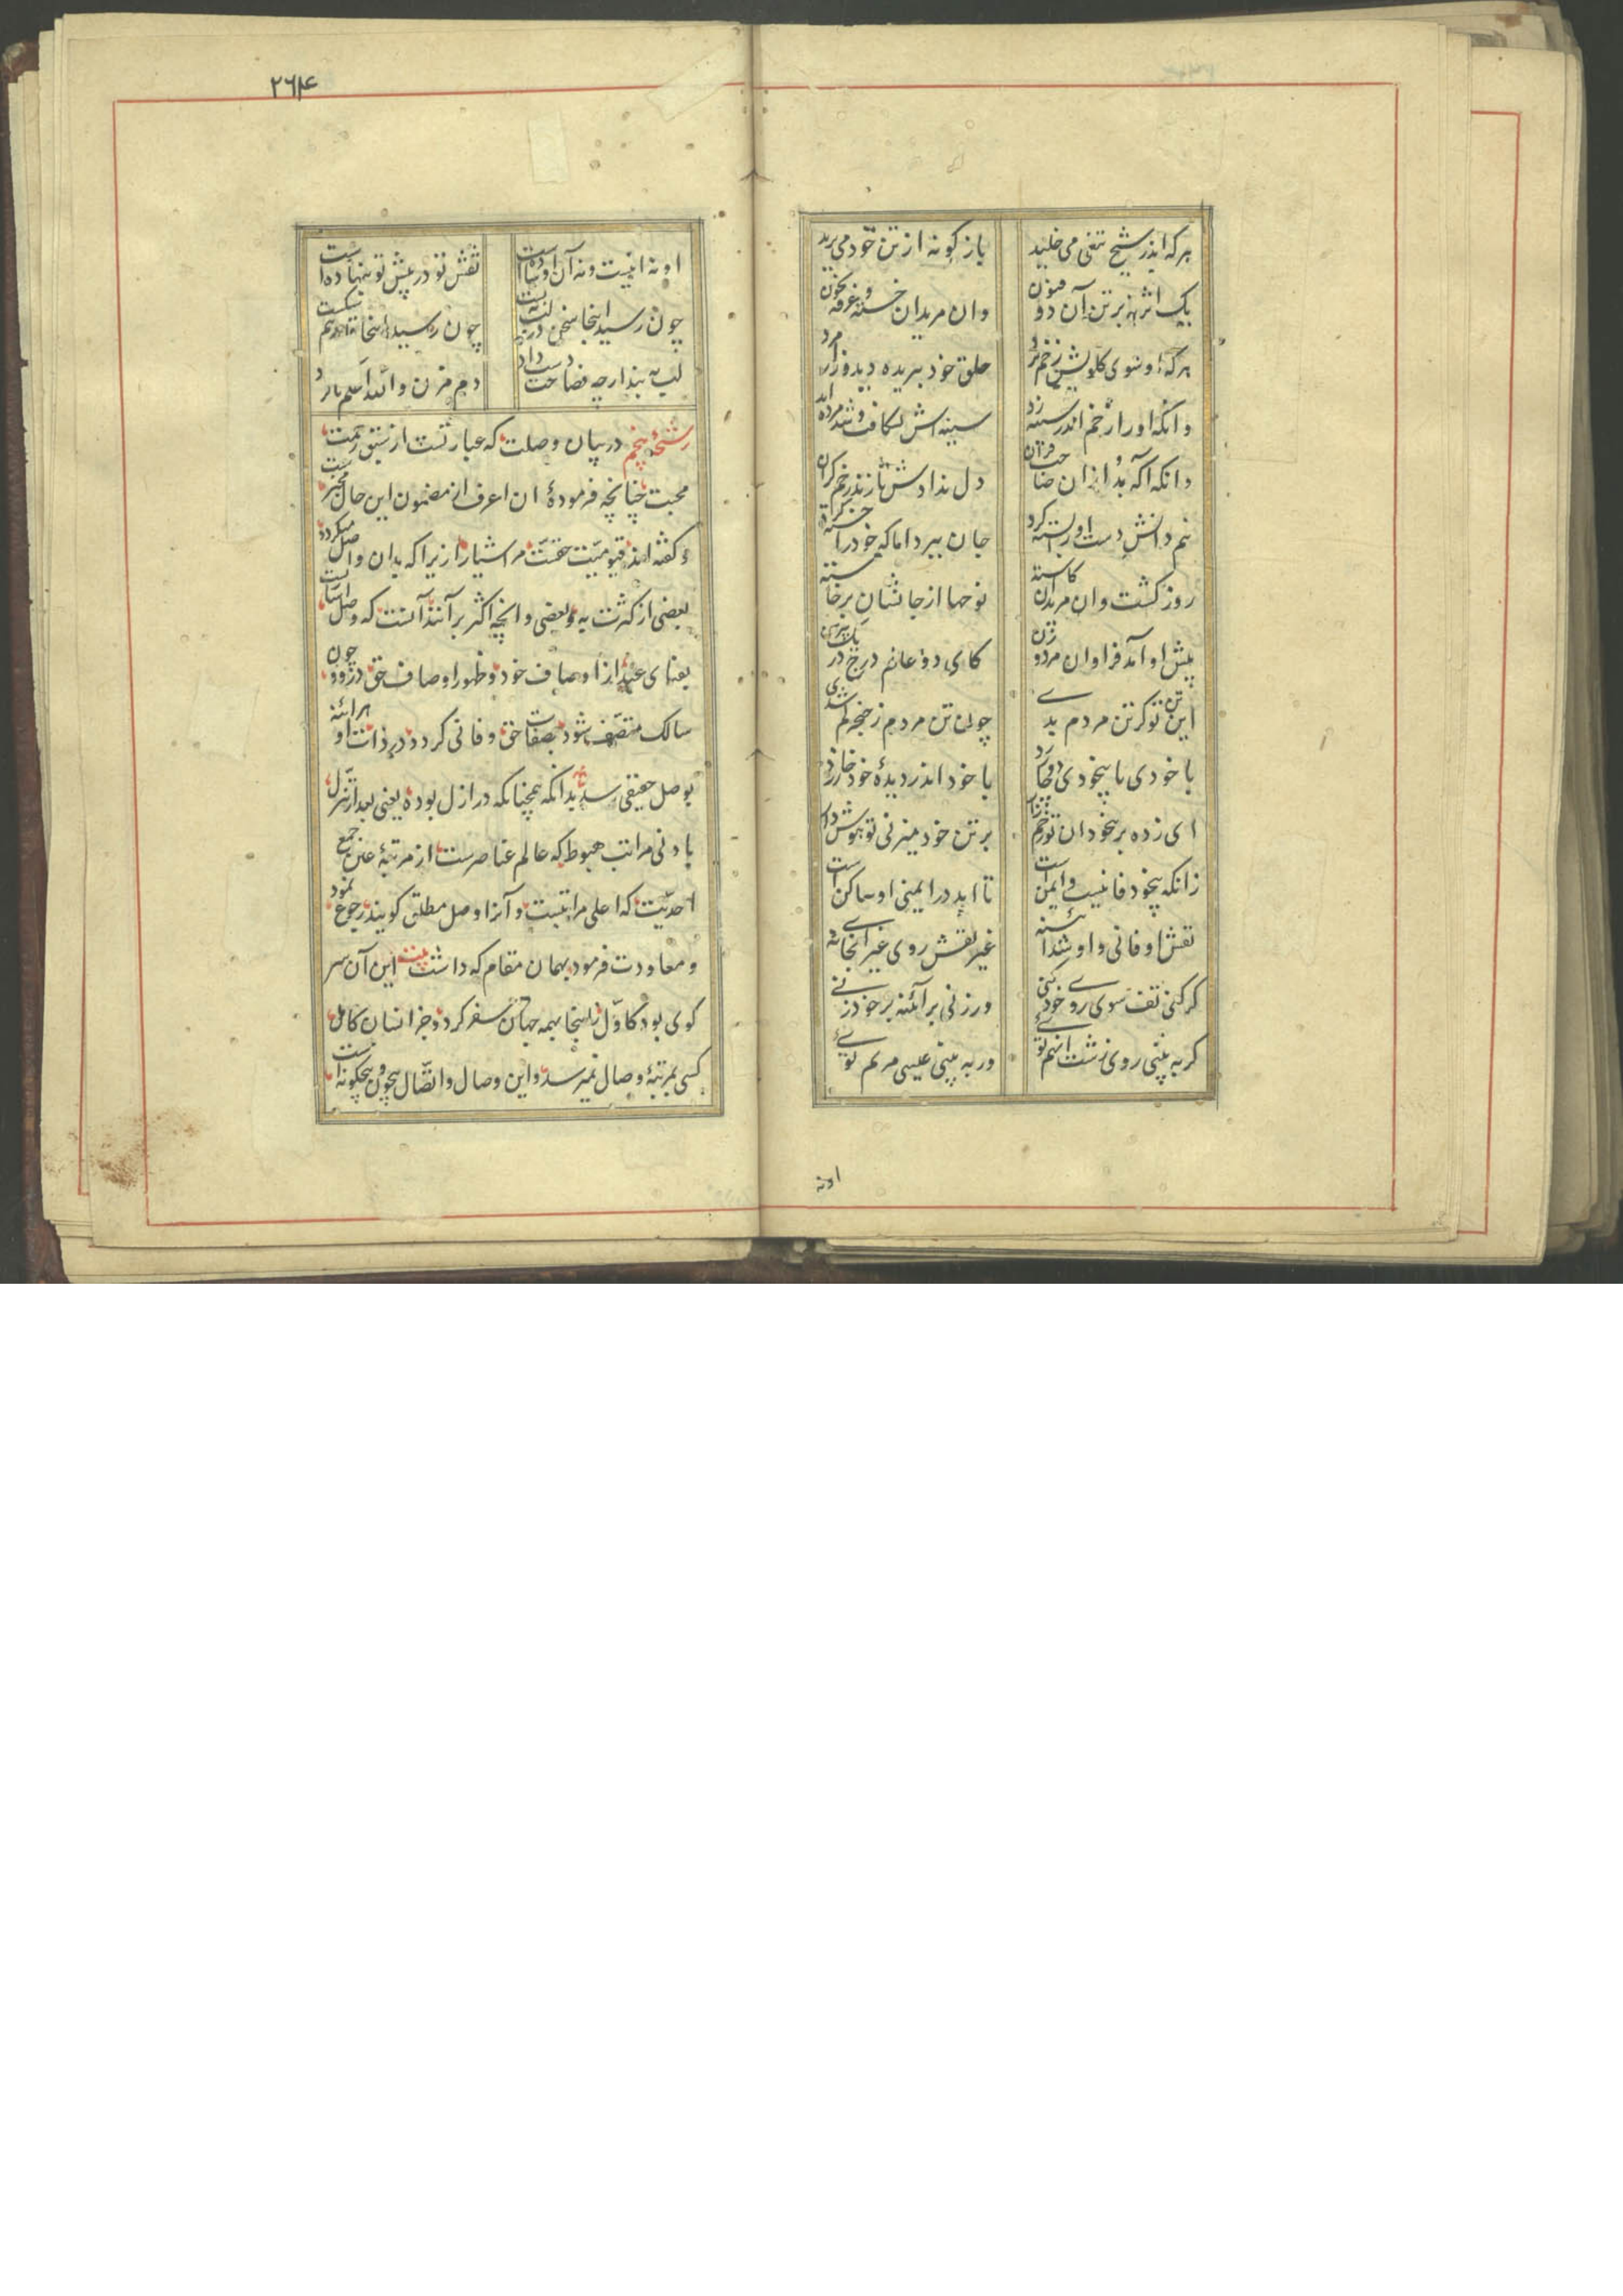 هرکه اندر شیخ تیغی می خلید بازکونه از تن خود می برید
یک اثر نه بر تن آن ذو فنون وان مریدان خسته و غرقه بخون
هرکه او سوی کلویش زخم برد حلق خود ببریده دید و زار مرد
وانکه او را زخم اندر سینه زد سینه اش بشکافت و شد مرده ابد
وانکه آکه بود ازان صاحب قران دل ندادش تا زند زخم کران
نیم دانش دست او را بسته کرد جان ببرد اما که خود را خسته کرد
روز کشت وان مریدان کاسته نوحها از جانشان برخاسته
پیش او آمد فراوان مرد و زن کای دو عالم درج در یک پیرهن
این تن تو کر تن مردم بدے چون تن مردم ز خنجر کم شدی
با خودی با بیخودی دوچار زد با خود اندر دیدهٔ خود خار زد
ای زده بر بیخودان تو زخم بر تن خود میزنی تو هوش دار
زانکه بیخود فانیست و ایمن است تا ابد در ایمنی او ساکن است
نقش او فانی و او شد آئینه غیر نقش روی غیر آنجای نه
کر کنی تف سوی روے خود کنی ور زنی بر آئنه بر خود زنے
کر به بینی روی زشت آنهم توئے ور به بینی عیسی مریم توئے
اونه
۲۶۴
او نه اینست و نه آن او ساده است نقش تو در پیش تو بنهاده است
چون رسید اینجا سخن لب در به بست چون رسید اینجا قلم درهم شکست
لب به بند ارچه فصاحت دست داد دم مزن والله اعلم بالرشاد
رشحهٔ پنجم در بیان وصلت که عبارتست از سبق رحمت
محبت چنانچه فرمودهٔ ان اعرف از مضمون این حال مخبر ست
و کفته اند قیومیت حقست مر اشیا را زیرا که بدان واصل میکردد
بعضی از کثرت به بعضی و انچه اکثر برآنند آنست که وصل است
بفنای عبد از اوصاف خود و ظهور اوصاف حق در وی چون
سالک متصف شود بصفات حق و فانی کردد در ذات او هرائنه
بوصل حقیقی رسد بدانکه همچنانکه در ازل بوده یعنی بعد از تنزل
بادنی مراتب هبوط که عالم عناصر ست از مرتبهٔ عین جمع
احدیت که اعلی مراتبست و آنرا وصل مطلق کویند رجوع نمود
و معاودت فرمود بهمان مقام که داشت بیت این آن سر
کوی بود کاول زاینجا بهمه جهان سفر کرد و جز انسان کامل
کسی بمرتبهٔ وصال نمیرسد و این وصال و اتصال بیچون و بیچکونه است